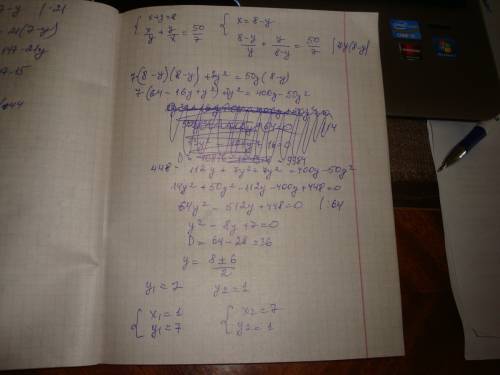 7-y (-21
21(7-y)
147-21y
{ x+y=8
x/y + y/x = 50/7
{ x = 8-y
(8-y)/y + y/(8-y) = 50/7 | 7y(8-y)
7(8-y)(8-y) + 7y² = 50y(8-y)
7·(64-16y+y²)+7y² = 400y-50y²
448 - 112y + 7y² + 7y² = 400y-50y²
14y² + 50y² - 112y - 400y + 448 = 0
64y² - 512y + 448 = 0 (:64
y² - 8y + 7 = 0
D = 64-28 = 36
y = (8±6)/2
y₁ = 7 y₂ = 1
{ x₁ = 1
y₁ = 7
{ x₂ = 7
y₂ = 1